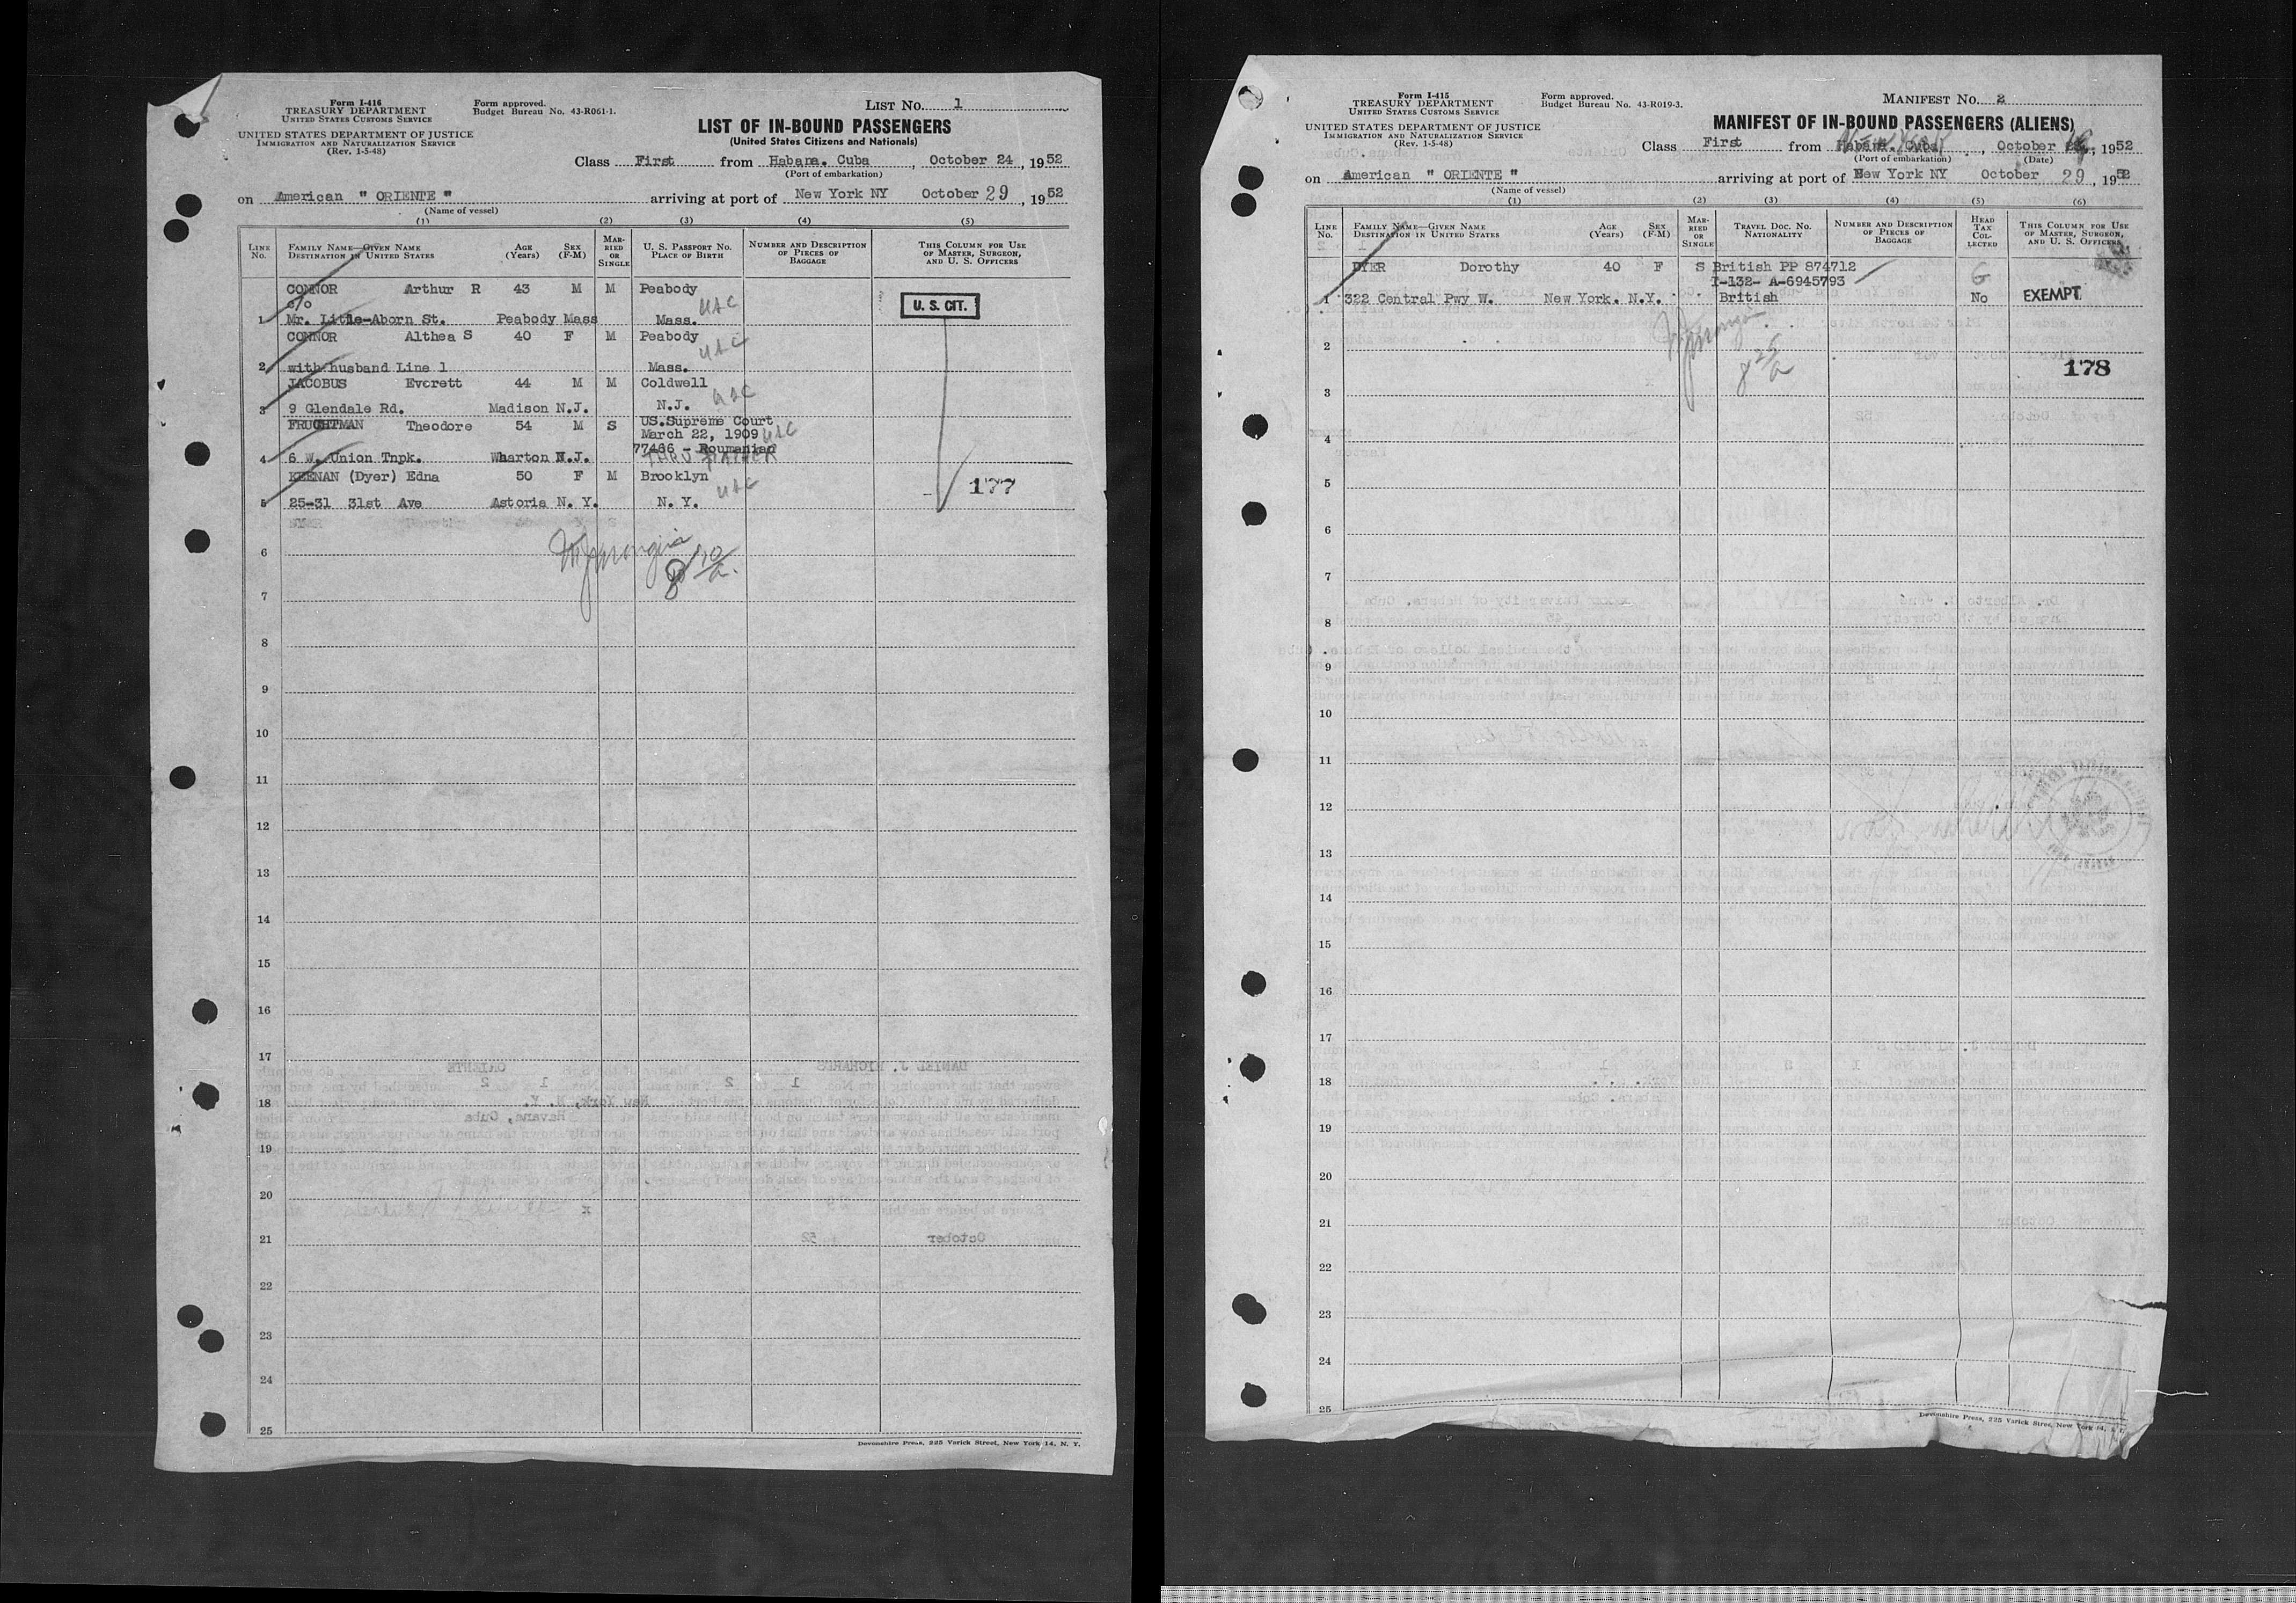 Form I-416
TREASURY DEPARTMENT
UNITED STATES CUSTOMS SERVICE
UNITED STATES DEPARTMENT OF JUSTICE
IMMIGRATION AND NATURALIZATION SERVICE
(Rev. 1-5-48)
Form approved.
Budget Bureau No. 43-R061-1.
LIST No. 1
LIST OF IN-BOUND PASSENGERS
(United States Citizens and Nationals)
Class First from Habana. Cuba, October 24, 1952
(Port of embarkation)
on American " ORIENTE " arriving at port of New York NY October 29, 1952
(Name of vessel)
(1) (2) (3) (4) (5)
LINE No.
FAMILY NAME—GIVEN NAME
DESTINATION IN UNITED STATES
AGE (Years)
SEX (F-M)
MARRIED OR SINGLE
U. S. PASSPORT NO.
PLACE OF BIRTH
NUMBER AND DESCRIPTION OF PIECES OF BAGGAGE
THIS COLUMN FOR USE OF MASTER, SURGEON, AND U. S. OFFICERS
CONNOR Arthur R 43 M M Peabody
c/o
1 Mr. Litle-Aborn St. Peabody Mass Mass.
U. S. CIT.
CONNOR Althea S 40 F M Peabody
2 with husband Line 1 Mass.
JACOBUS Everett 44 M M Coldwell
3 9 Glendale Rd. Madison N.J. N.J.
FRUCHTMAN Theodore 54 M S US.Supreme Court
March 22, 1909
77466 - Roumanian
4 6 W. Union Tnpk. Wharton N.J. THRU FATHER
KEENAN (Dyer) Edna 50 F M Brooklyn
5 25-31 31st Ave Astoria N. Y. N. Y.
177
6
7
8
9
10
11
12
13
14
15
16
17
18
19
20
21
22
23
24
25
Devonshire Press, 225 Varick Street, New York 14, N. Y.
Form I-415
TREASURY DEPARTMENT
UNITED STATES CUSTOMS SERVICE
UNITED STATES DEPARTMENT OF JUSTICE
IMMIGRATION AND NATURALIZATION SERVICE
(Rev. 1-5-48)
Form approved.
Budget Bureau No. 43-R019-3.
MANIFEST No. 2
MANIFEST OF IN-BOUND PASSENGERS (ALIENS)
Class First from Habana. Cuba, October, 1952
(Port of embarkation) (Date)
on American " ORIENTE " arriving at port of New York NY October 29, 1952
(Name of vessel)
(1) (2) (3) (4) (5) (6)
LINE No.
FAMILY NAME—GIVEN NAME
DESTINATION IN UNITED STATES
AGE (Years)
SEX (F-M)
MARRIED OR SINGLE
TRAVEL DOC. NO.
NATIONALITY
NUMBER AND DESCRIPTION OF PIECES OF BAGGAGE
HEAD TAX COLLECTED
THIS COLUMN FOR USE OF MASTER, SURGEON, AND U. S. OFFICERS
DYER Dorothy 40 F S British PP 874712
I-132- A-6945793
1 322 Central Pwy W. New York. N.Y. British No EXEMPT
178
2
3
4
5
6
7
8
9
10
11
12
13
14
15
16
17
18
19
20
21
22
23
24
25
Devonshire Press, 225 Varick Street, New York 14, N. Y.